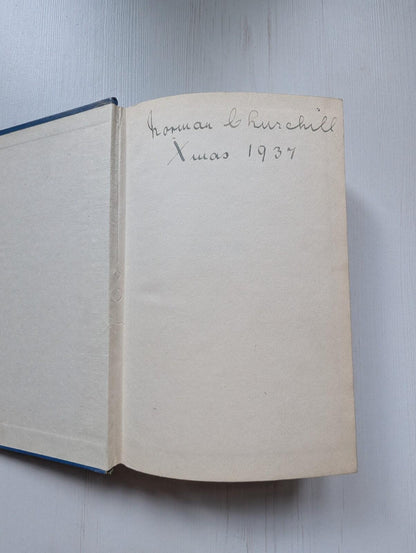 Norman Churchill
Xmas 1937